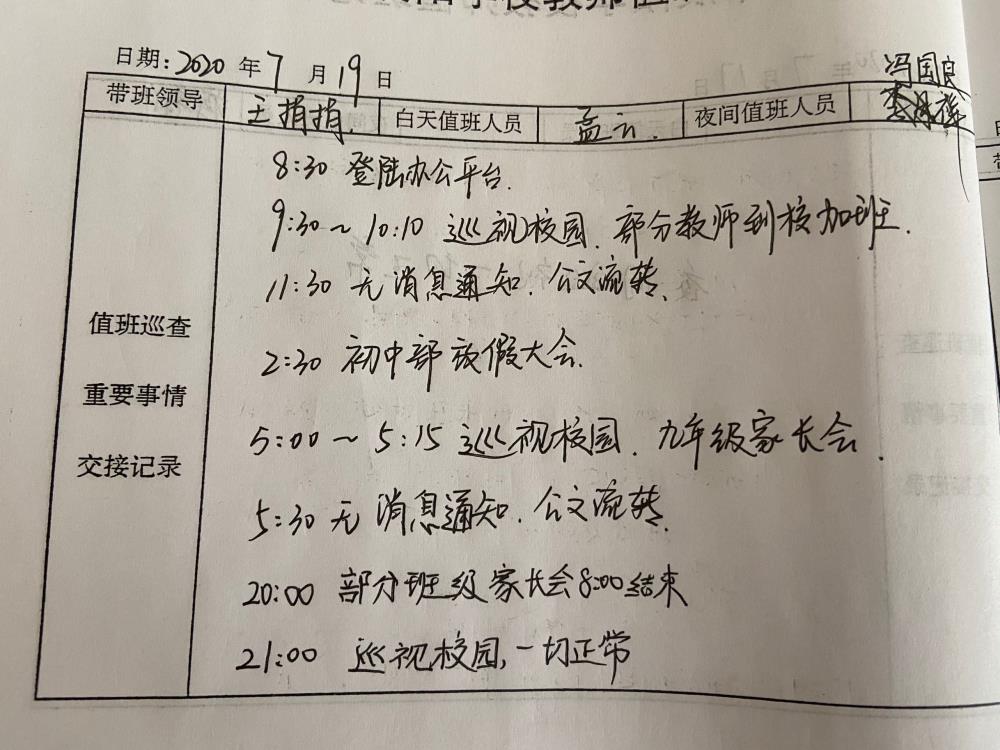 日期:2020 年 7 月 19 日
带班领导 王捐捐. 白天值班人员 孟云. 夜间值班人员 冯国良
8:30 登陆办公平台.
9:30~10:10 巡视校园.部分教师到校加班.
11:30 无消息通知.公文流转.
值班巡查
2:30 初中部放假大会.
重要事情
5:00~5:15 巡视校园.九年级家长会.
交接记录
5:30 无消息通知.公文流转.
20:00 部分班级家长会8:00结束
21:00 巡视校园,一切正常